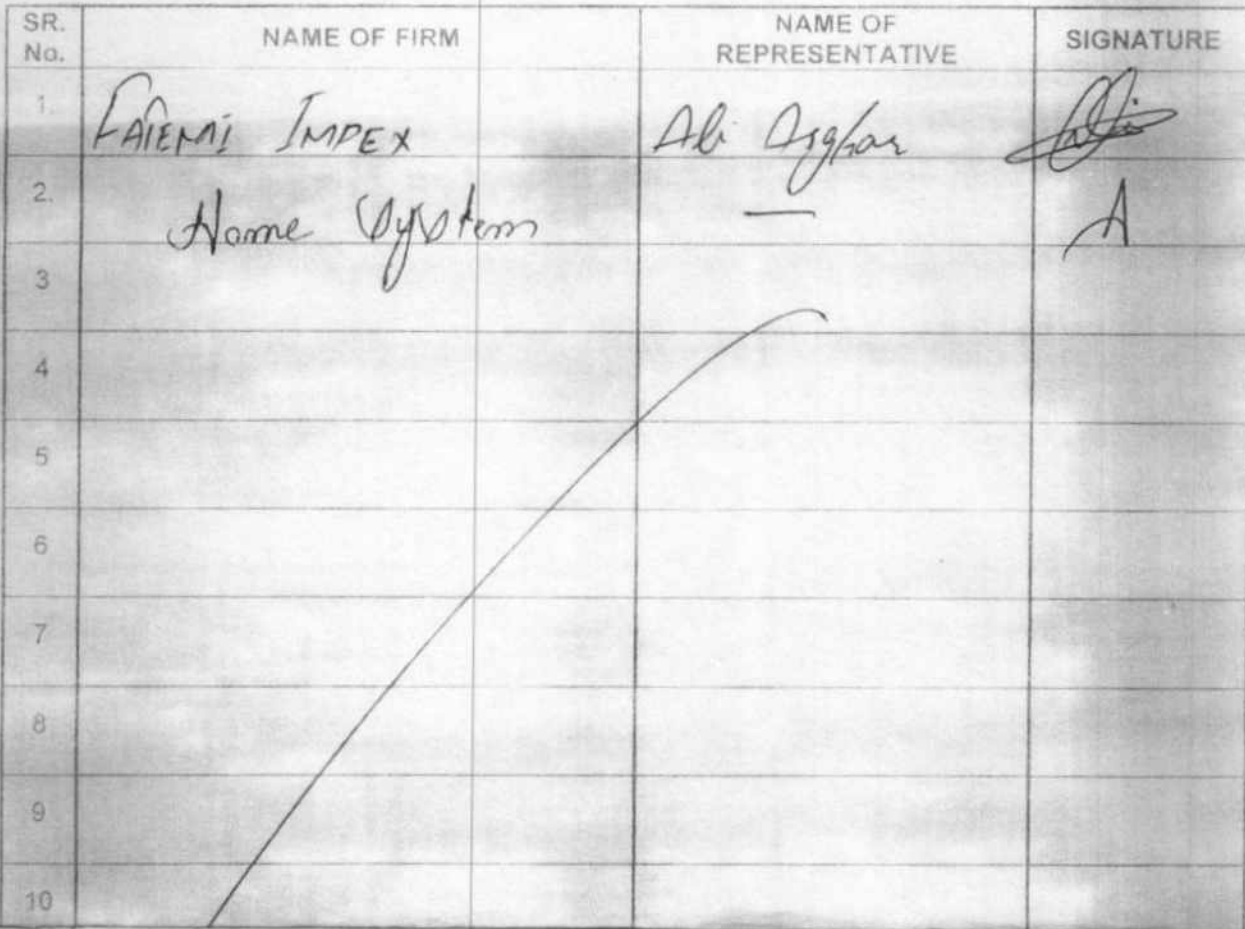 SR. No. NAME OF FIRM NAME OF REPRESENTATIVE SIGNATURE
1. FATEMI IMPEX Ali Asghar
2. Home System — A
3
4
5
6
7
8
9
10